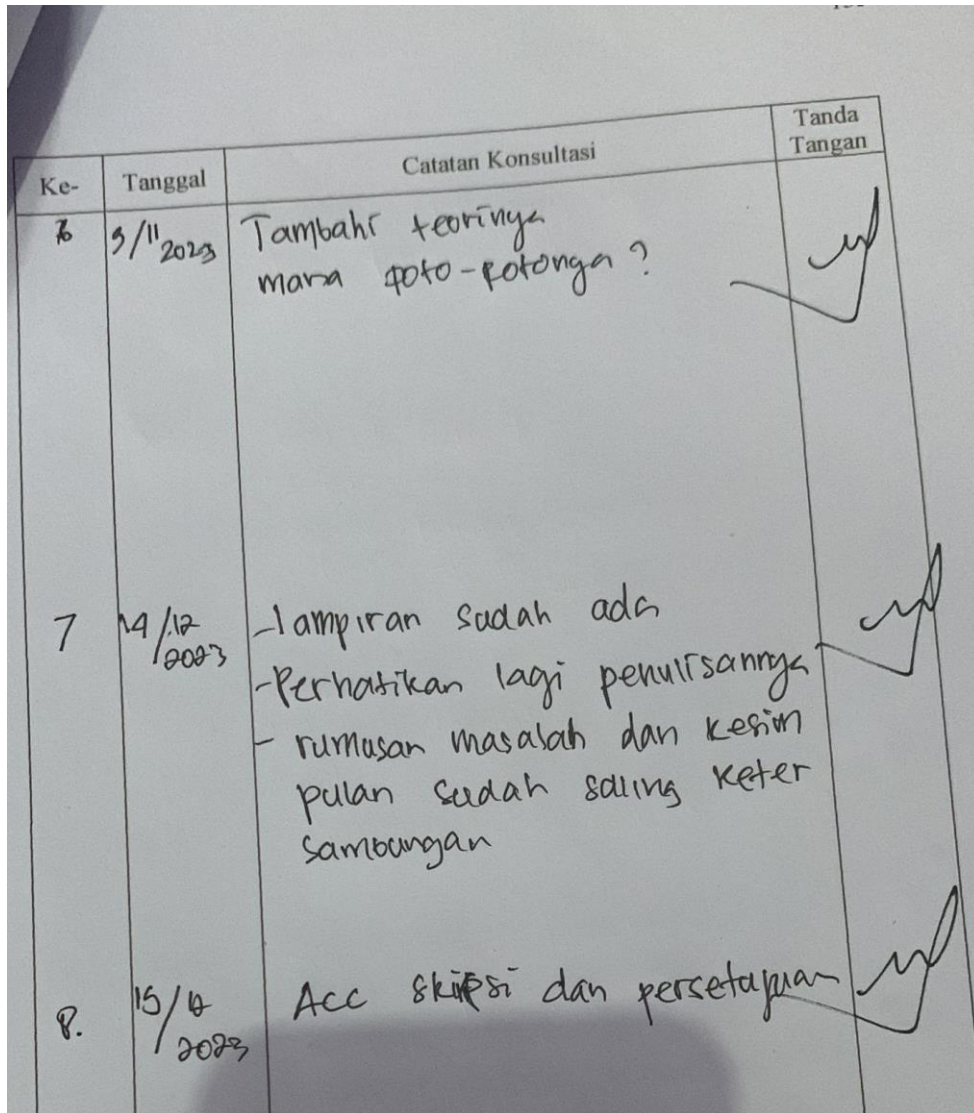 Ke- Tanggal Catatan Konsultasi Tanda Tangan
6 9/11 2023 Tambahi teorinya
mana foto-fotonga?
7 14/12 2023 -lampiran sudah ada
-Perhatikan lagi penulisannya
- rumusan masalah dan kesim
pulan sudah saling keter
sambungan
8. 15/12 2023 Acc skripsi dan persetujuan